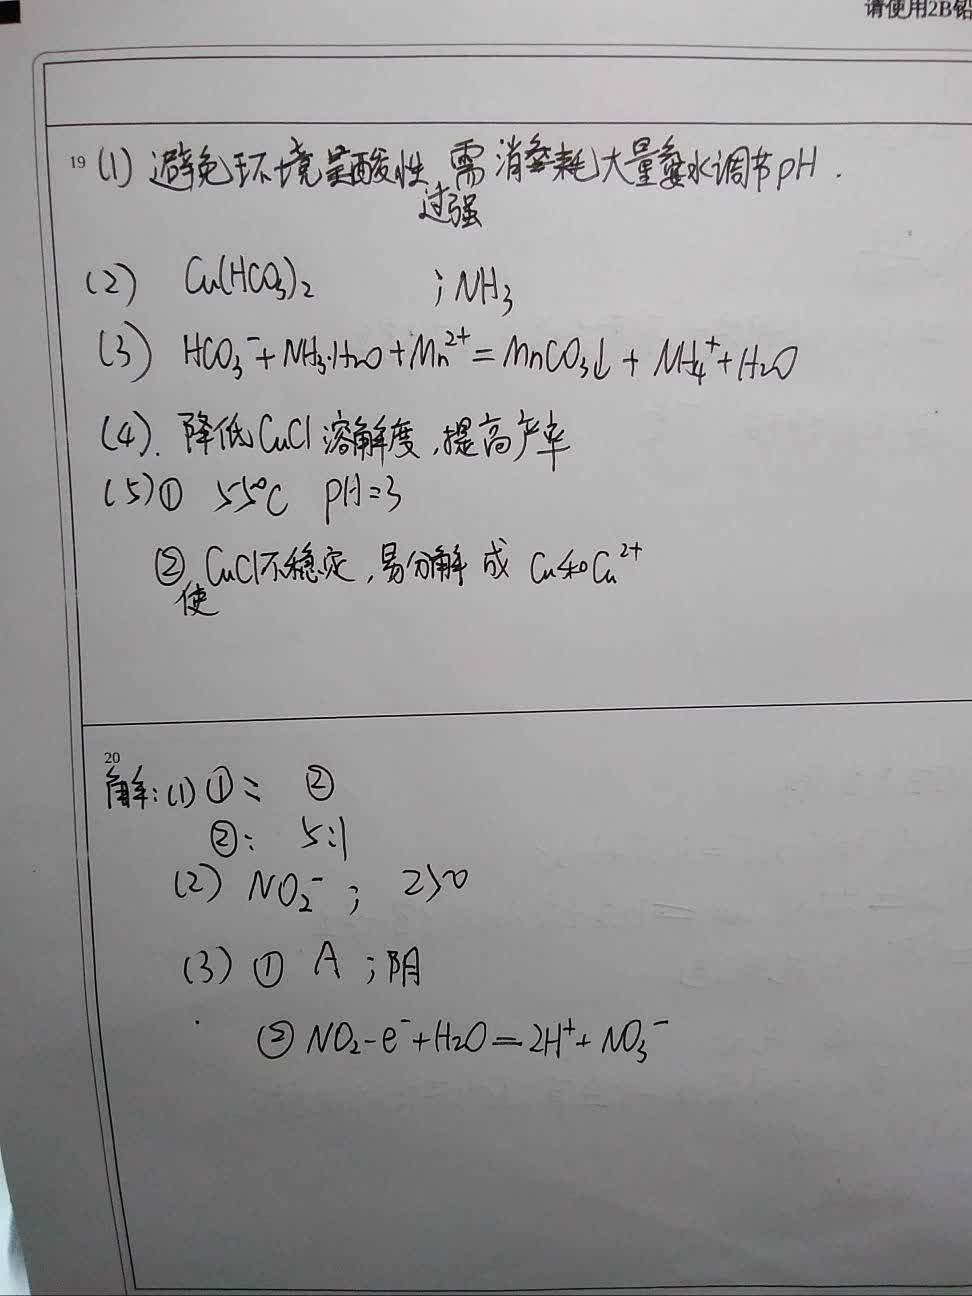 请使用2B铅
19 (1) 避免环境呈酸性过强 需消耗大量氨水调节pH.
(2) Cu(HCO₃)₂ ; NH₃
(3) HCO₃⁻+NH₃·H₂O+Mn²⁺=MnCO₃↓+NH₄⁺+H₂O
(4). 降低CuCl溶解度,提高产率
(5)① 55°C pH=3
② 使CuCl不稳定,易分解成 Cu和Cu²⁺
20
解:(1)①: ②
②: 5:1
(2) NO₂⁻; 250
(3) ① A ;阴
② NO₂-e⁻+H₂O=2H⁺+NO₃⁻